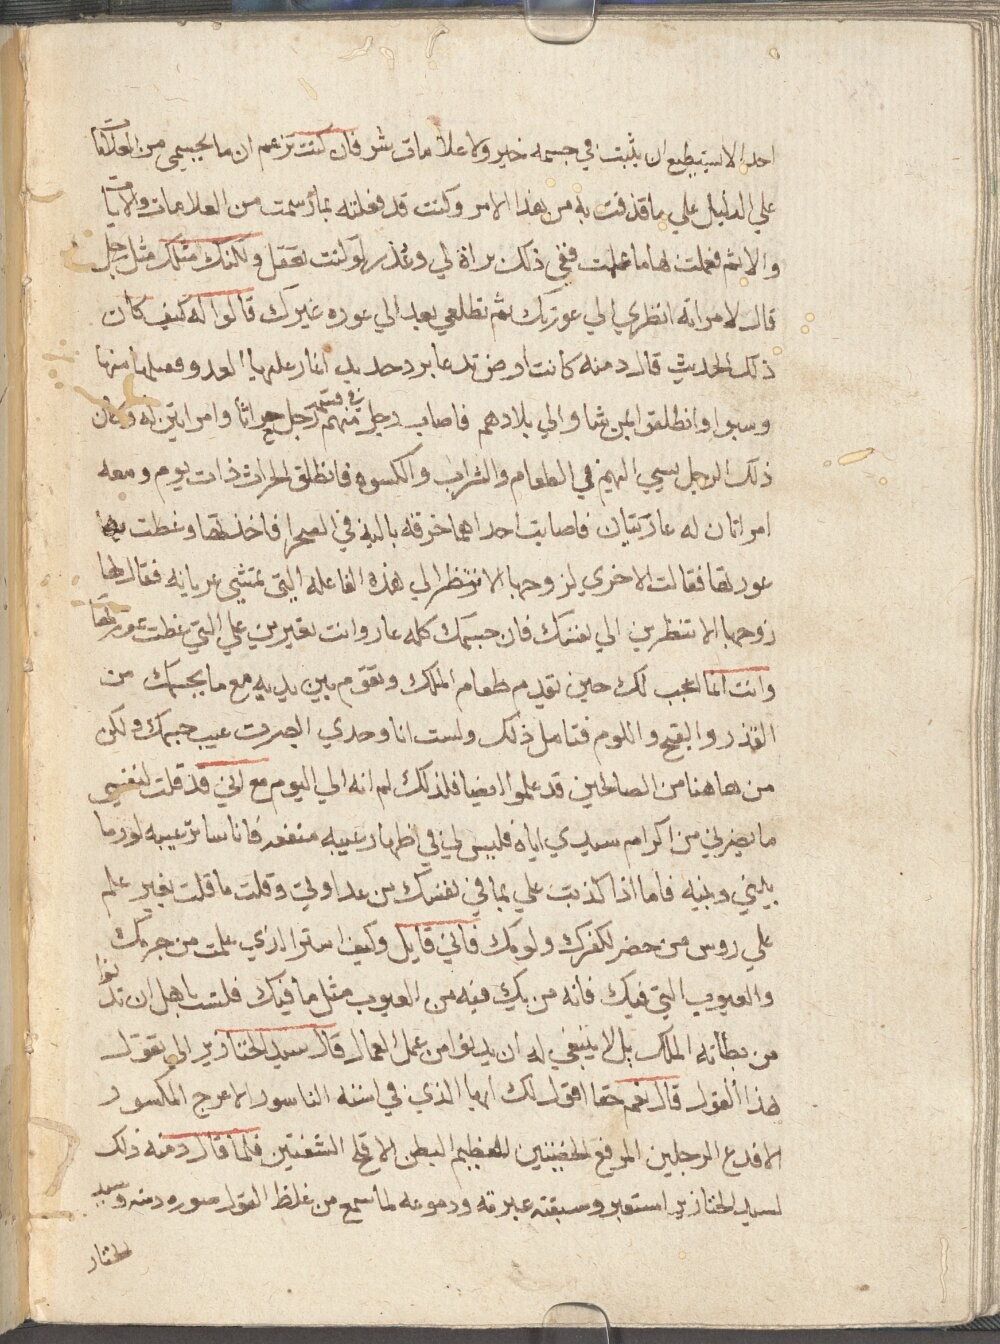 احد الا يستطيع ان يثبت في جسمه خير ولا علامات شر فان كنت تزعم ان ما بجسمي من العلامات
علي الدليل علي ما قذفت به من هذا الامر وكنت قد فعلته بما رسمت من العلامات والايات
والاثم فعملت بها ما عملت ففي ذلك براة لي وعذر لو كنت تعقل ولكنك مثلك مثل رجل
قال لامراته انظري الي عورتك ثم تطلعي بعد الي عوره غيرك قالوا له كيف كان
ذلك الحديث قال دمنه كانت ارض تدعا بردحد يد اغار عليها العدو فقتلوا منها
وسبوا وانطلقوا الي بلادهم فاصاب رجل منهم في قسمه رجل حراثا وامراتين له وكان
ذلك الرجل يسي اليهم في الطعام والشراب والكسوه فانطلق الحراث ذات يوم ومعه
امراتان له عاريتان فاصابت احداهما خرقه باليه في الصحرا فاخذتها وغطت بها
عورتها فقالت الاخري لزوجها الا تنتظر الي هذه الفاعله التي تمشي عريانه فقال لها
زوجها الا تنظرين الي نفسك فان جسمك كله عار وانت تعيرين علي التي غطت عورتها
وانت انما اعجب لك حين تقدم طعام الملك وتقوم بين يديه مع ما بجسمك من
القذر والقبح واللوم فتامل ذلك ولست انا وحدي ابصرت عيب جسمك ولكن
من هاهنا من الصالحين قد علموا ايضا فلذلك لم انه الي اليوم مع اني قد قلت لنفسي
ما يضرني من اكرام سيدي اياه فليس لي في اظهار عيبه منفعه فانا ساتر عيبه لود ما
بيني وبينه فاما اذا كذبت علي بما في نفسك من عداوتي وقلت ما قلت بغير علم
علي روس من حضر لكفرك ولومك فاني قايل وكيف استر الذي علمت من جرمك
والعيوب التي فيك فانه من يك فيه من العيوب مثل ما فيك فلست باهل ان تدنوا
من بطانه الملك بل لا ينبغي له ان يدنوا من عمل العمال قال سيد الخنازير الي تقول
هذا القول قال نعم حقا اقول لك ايها الذي في استه الناسور الاعرج المكسور
الافدع الرجلين المرفع الخصيتين العظيم البطن الاقلح الشفتين فلما قال دمنه ذلك
لسيد الخنازير استعبر وسبقته عبرته ودموعه لما سمع من غلظ القول صوره دمنه وسيد
الخنار